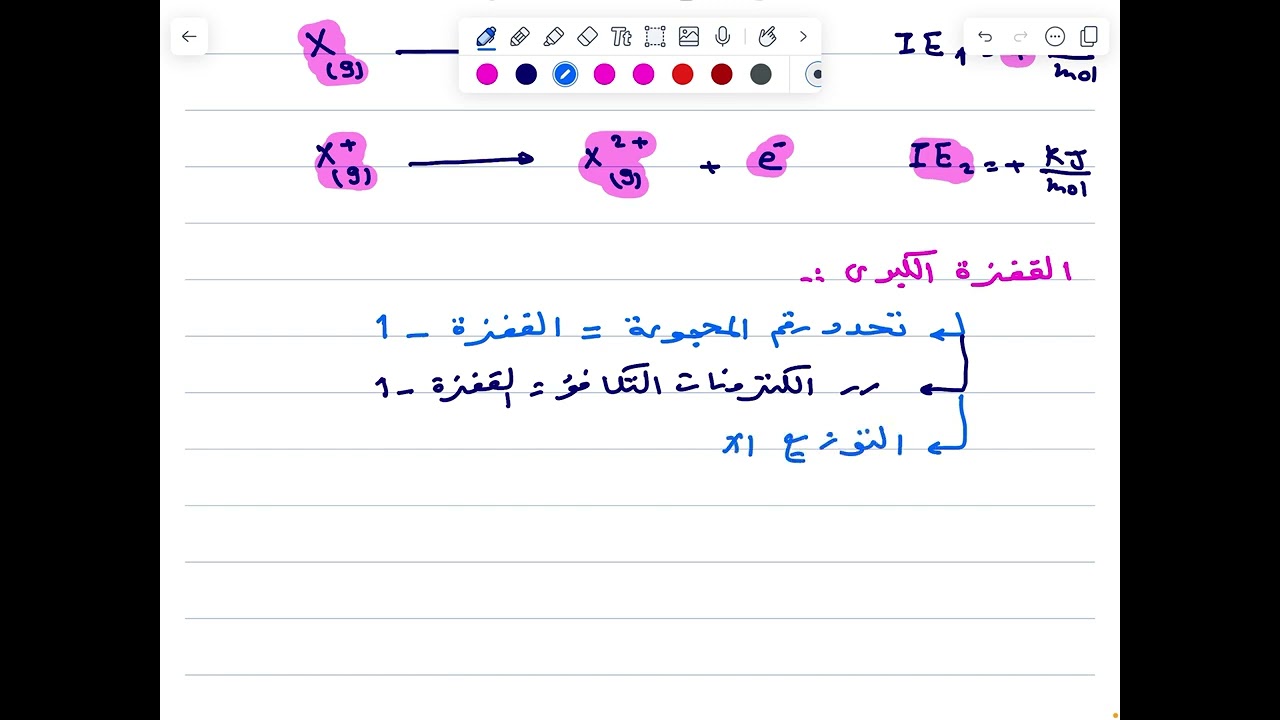 X(g) ⟶ IE₁ = + /mol
X⁺(g) ⟶ X²⁺(g) + e⁻ IE₂ = + KJ/mol
القفزة الكبرى :-
تحدد رقم المجموعة = القفزة - 1
رر الكترونات التكافؤ = القفزة - 1
التوزيع